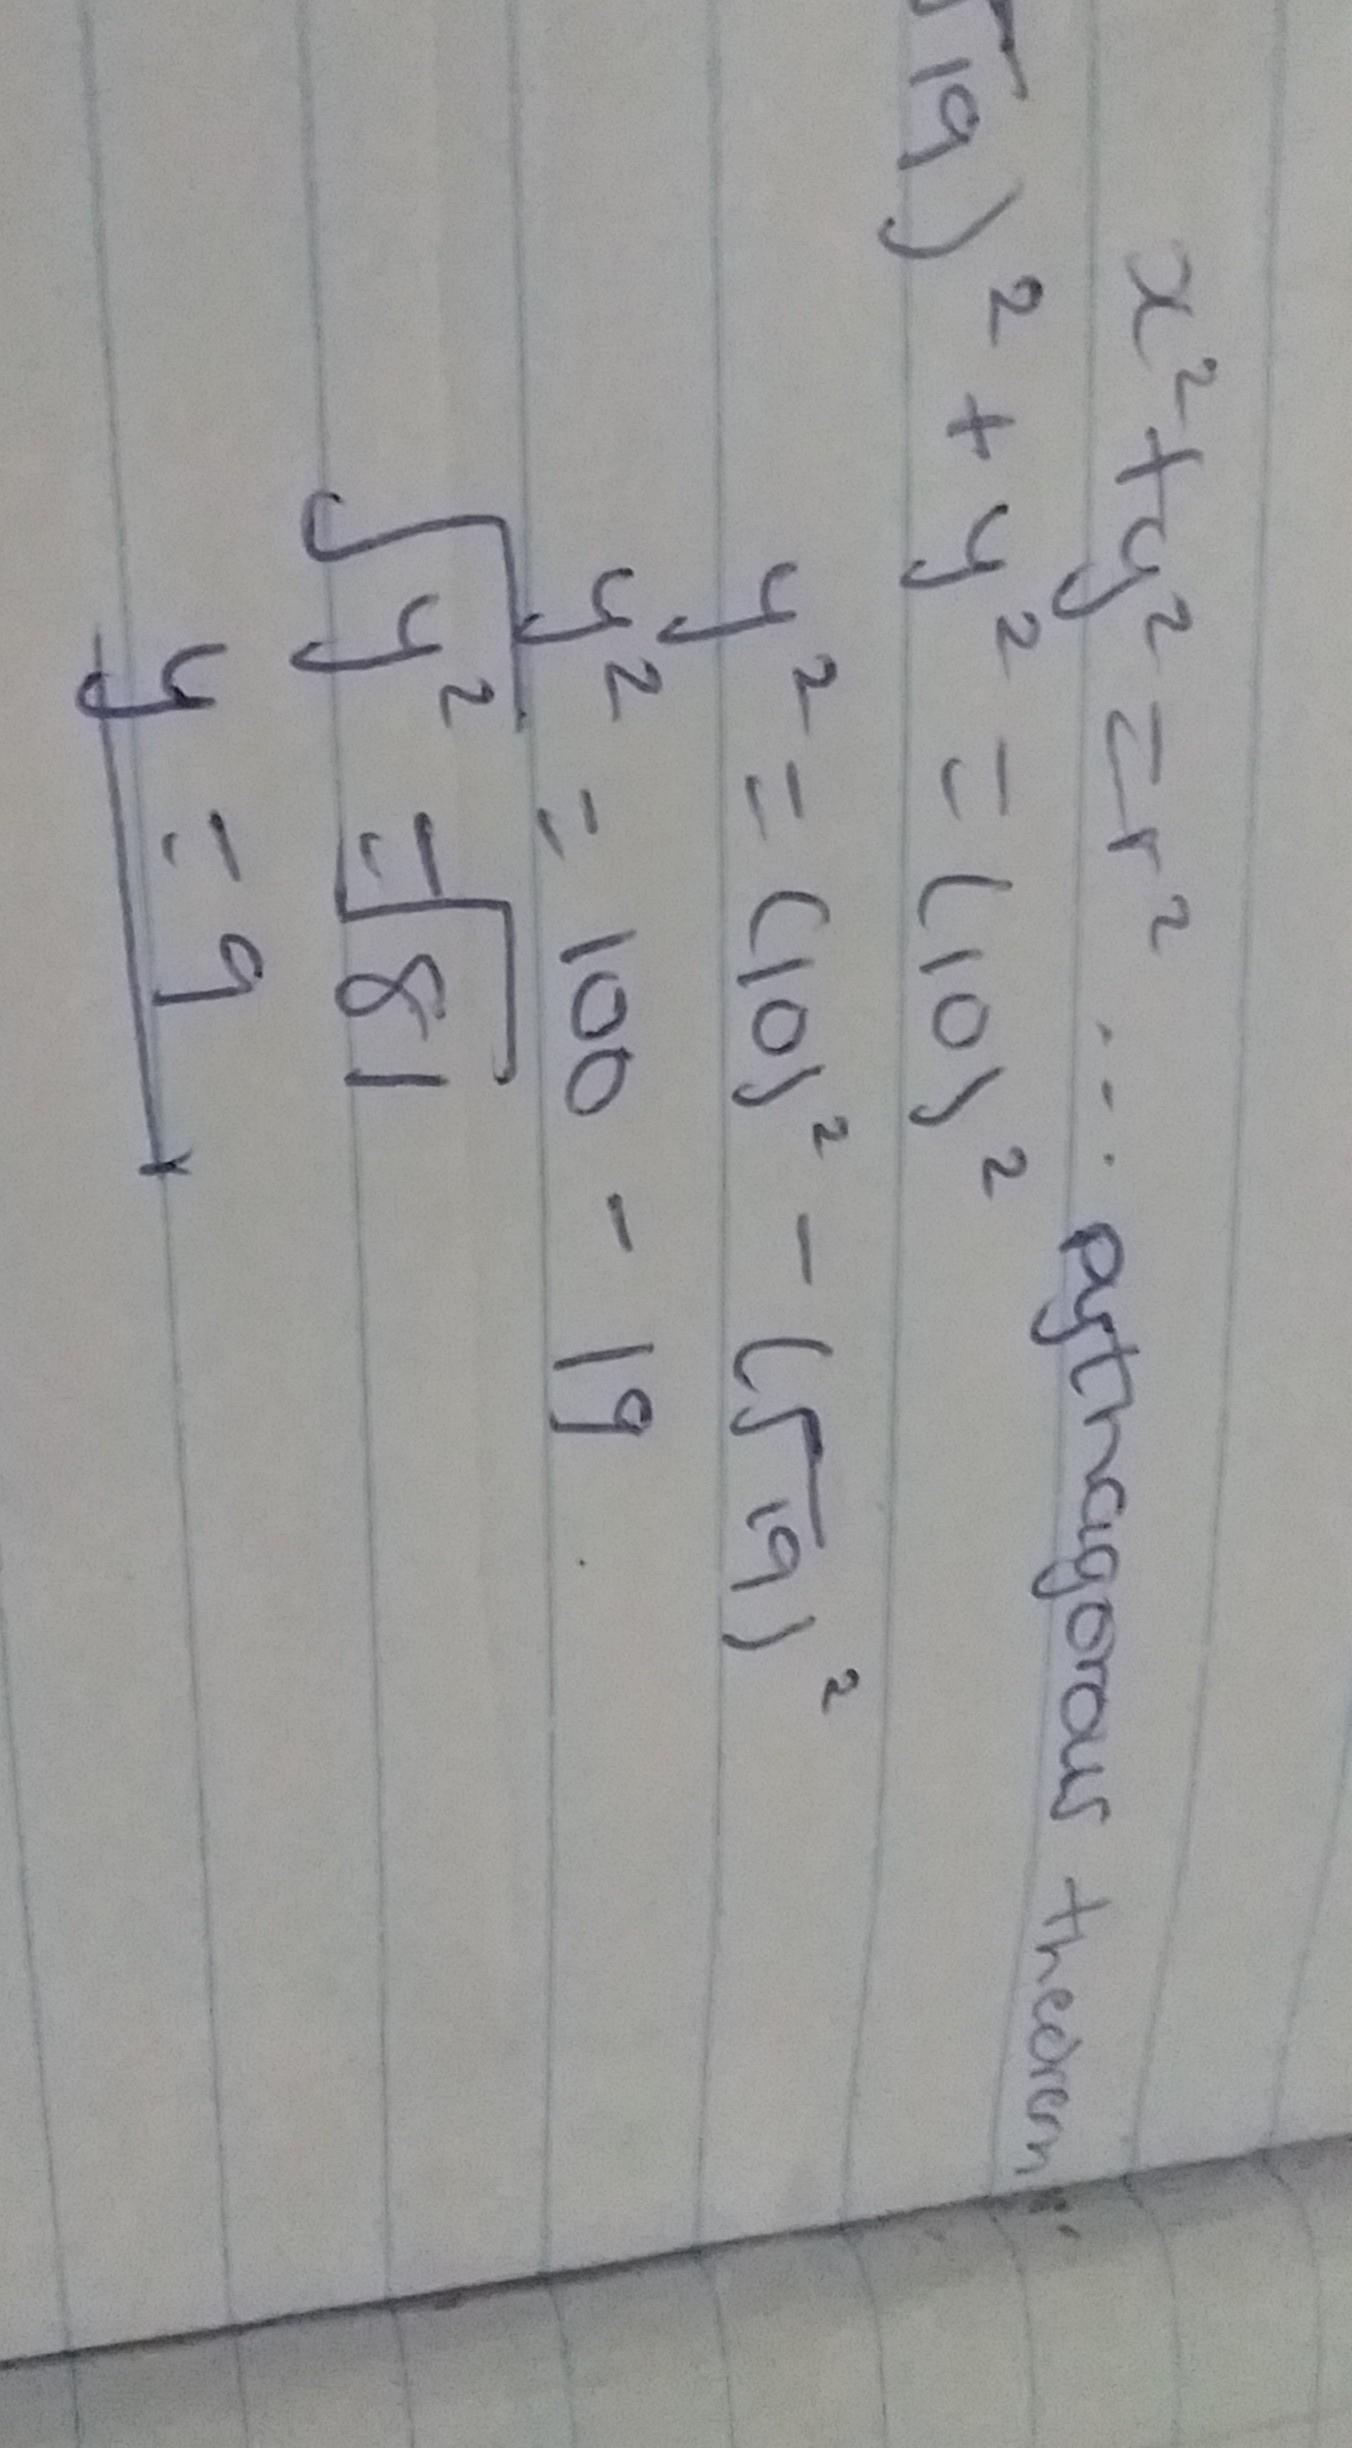 x² + y² = r² ... pythagorous theorem
√19)² + y² = (10)²
y² = (10)² - (√19)²
y² = 100 - 19
√y² = √81
y = 9